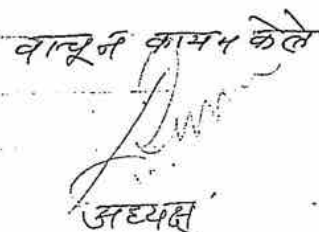 वाचून कायम केले
अध्यक्ष